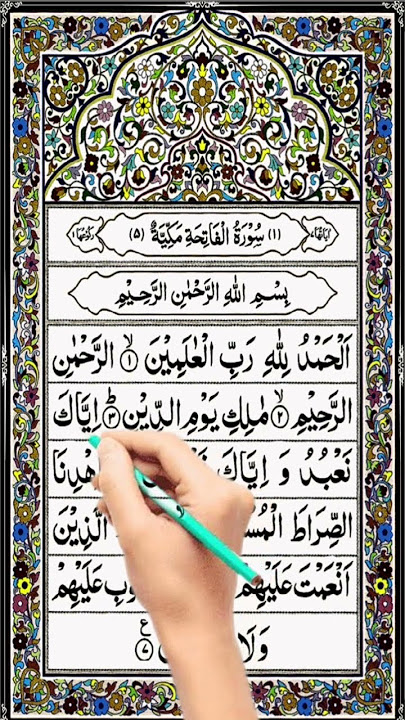 اٰیَاتُهَا ٧ (١) سُوْرَةُ الْفَاتِحَةِ مَكِّیَّةٌ (٥) رُكُوْعُهَا ١
بِسْمِ اللّٰهِ الرَّحْمٰنِ الرَّحِیْمِ
اَلْحَمْدُ لِلّٰهِ رَبِّ الْعٰلَمِیْنَ ۙ﴿١﴾ الرَّحْمٰنِ
الرَّحِیْمِ ۙ﴿٢﴾ مٰلِكِ یَوْمِ الدِّیْنِ ؕ﴿٣﴾ اِیَّاكَ
نَعْبُدُ وَ اِیَّاكَ
الصِّرَاطَ الَّذِیْنَ
اَنْعَمْتَ عَلَیْهِمْ عَلَیْهِمْ
وَلَا ﴿٧﴾ ع